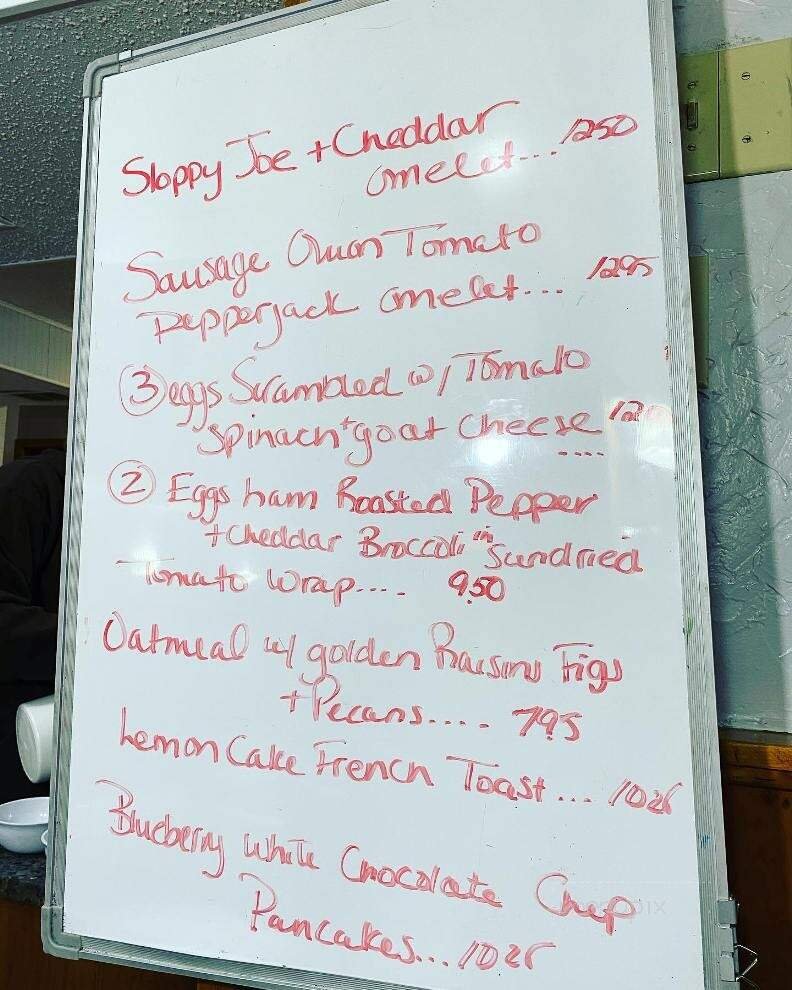 Sloppy Joe + Cheddar
omelet... 1250
Sausage Onion Tomato
Pepperjack omelet... 1295
③ eggs Scrambled w/ Tomato
spinach + goat cheese ....
② Eggs ham Roasted Pepper
+ Cheddar Broccoli in Sundried
Tomato Wrap.... 9.50
Oatmeal w/ golden Raisins Figs
+ Pecans..... 795
Lemon Cake French Toast... 1025
Blueberry White Chocolate Chip
Pancakes... 1025